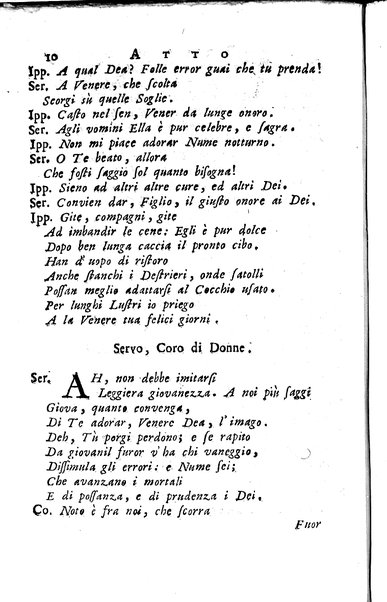 10 ATTO
Ipp. A qual Dea? Folle error guai che tu prenda!
Ser. A Venere, che ſcolta
Scorgi sù quelle Soglie.
Ipp. Caſto nel ſen, Vener da lunge onoro.
Ser. Agli vomini Ella è pur celebre, e ſagra.
Ipp. Non mi piace adorar Nume notturno.
Ser. O Te beato, allora
Che foſti ſaggio ſol quanto biſogna!
Ipp. Sieno ad altri altre cure, ed altri Dei.
Ser. Convien dar, Figlio, il giuſto onore ai Dei.
Ipp. Gite, compagni, gite
Ad imbandir le cene: Egli è pur dolce
Dopo ben lunga caccia il pronto cibo.
Han d'uopo di riſtoro
Anche ſtanchi i Deſtrieri, onde ſatolli
Poſſan meglio adattarſi al Cocchio uſato.
Per lunghi Luſtri io priego
A la Venere tua felici giorni.
Servo, Coro di Donne.
Ser. AH, non debbe imitarſi
Leggiera giovanezza. A noi più ſaggi
Giova, quanto convenga,
Di Te adorar, Venere Dea, l'imago.
Deh, Tù porgi perdono; e ſe rapito
Da giovanil furor v'ha chi vaneggio,
Diſſimula gli errori: e Nume ſei;
Che avanzano i mortali
E di poſſanza, e di prudenza i Dei.
Co. Noto è fra noi, che ſcorra
Fuor